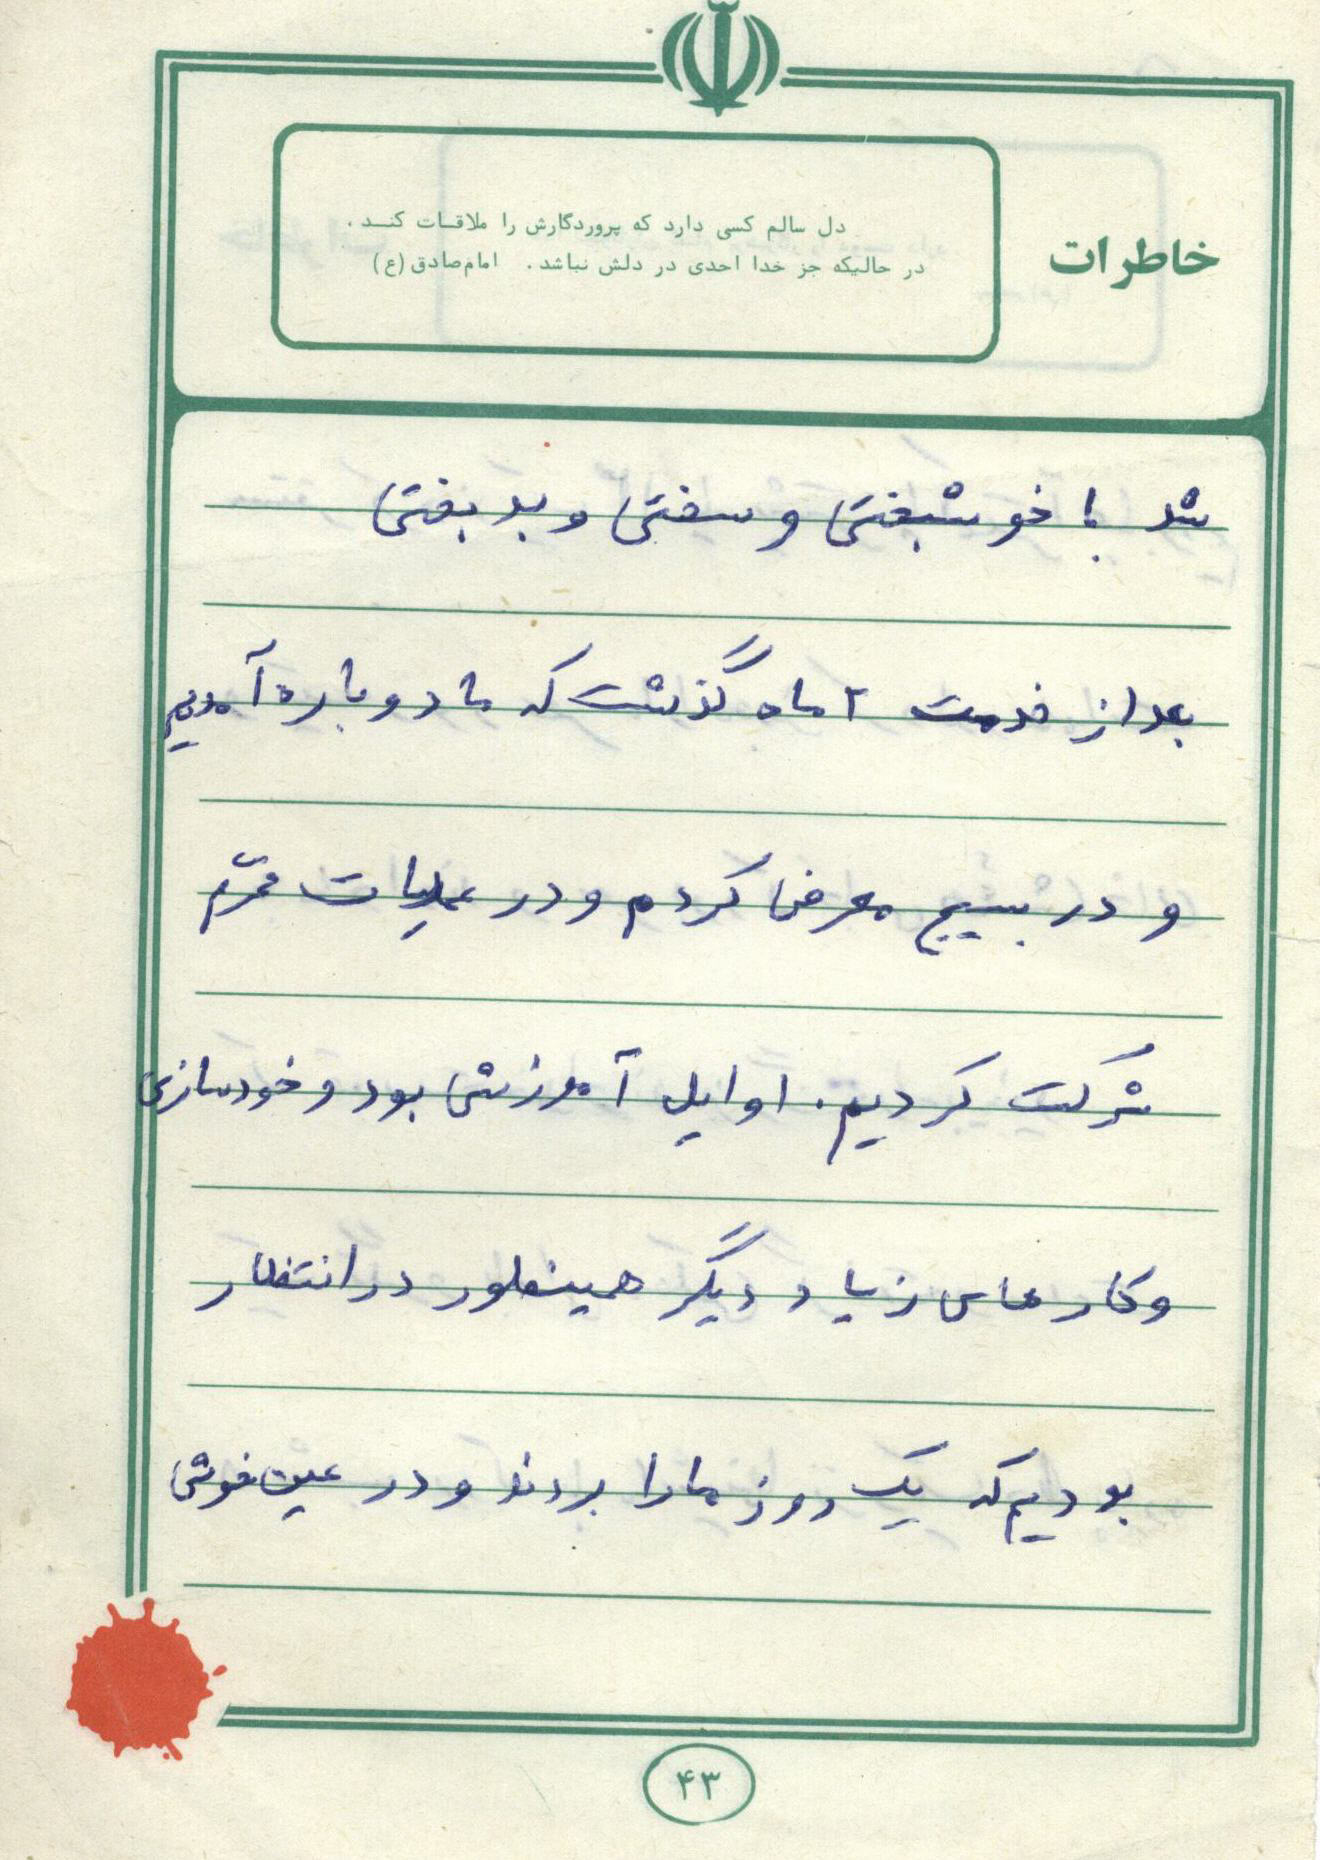 خاطرات
دل سالم کسی دارد که پروردگارش را ملاقات کند .
در حالیکه جز خدا احدی در دلش نباشد . امام صادق (ع)
شد با خوشبختی و سختی و بدبختی
بعد از خدمت ۲ ماه گذشت که ما دوباره آمدیم
و در بسیج معرفی کردم و در عملیات محرّم
شرکت کردیم . اوایل آموزشی بود و خودسازی
و کارهای زیاد دیگر همینطور در انتظار
بودیم که یک روز ما را بردند و در عین خوشی
۴۳